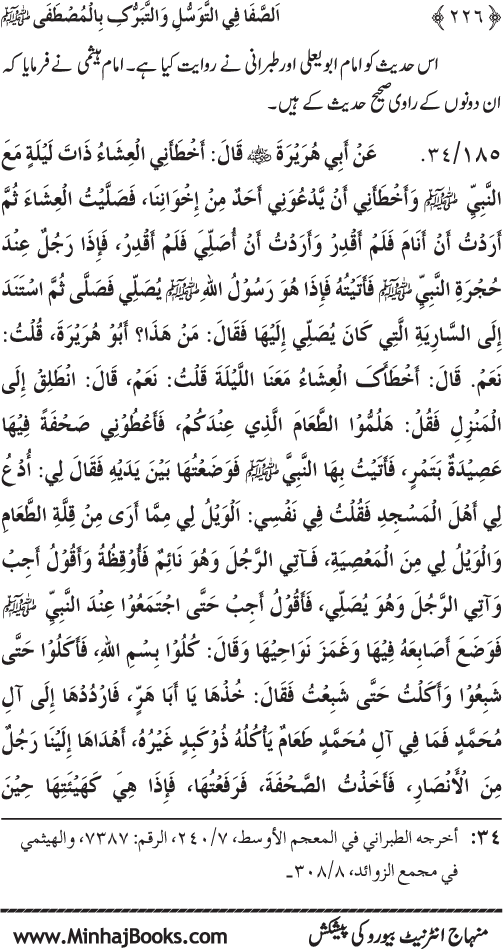 ﴿٢٢٦﴾ اَلصَّفَا فِي التَّوَسُّلِ وَالتَّبَرُّکِ بِالْمُصْطَفٰی ﷺ
اس حدیث کو امام ابو یعلی اور طبرانی نے روایت کیا ہے۔ امام ہیثمی نے فرمایا کہ
ان دونوں کے راوی صحیح حدیث کے ہیں۔
٣٤/١٨٥. عَنْ أَبِي هُرَيْرَةَ رضی اللہ عنہ قَالَ: أَخْطَأَنِي الْعِشَاءُ ذَاتَ لَيْلَةٍ مَعَ
النَّبِيِّ ﷺ وَأَخْطَأَنِي أَنْ يَّدْعُوَنِي أَحَدٌ مِنْ إِخْوَانِنَا، فَصَلَّيْتُ الْعِشَاءَ ثُمَّ
أَرَدْتُ أَنْ أَنَامَ فَلَمْ أَقْدِرْ وَأَرَدْتُ أَنْ أُصَلِّيَ فَلَمْ أَقْدِرْ، فَإِذَا رَجُلٌ عِنْدَ
حُجْرَةِ النَّبِيِّ ﷺ فَأَتَيْتُهُ فَإِذَا هُوَ رَسُوْلُ اللهِ ﷺ يُصَلِّي فَصَلَّى ثُمَّ اسْتَنَدَ
إِلَى السَّارِيَةِ الَّتِي كَانَ يُصَلِّي إِلَيْهَا فَقَالَ: مَنْ هَذَا؟ أَبُوْ هُرَيْرَةَ، قُلْتُ:
نَعَمْ. قَالَ: أَخْطَأَکَ الْعِشَاءُ مَعَنَا اللَّيْلَةَ قُلْتُ: نَعَمْ، قَالَ: انْطَلِقْ إِلَى
الْمَنْزِلِ فَقُلْ: هَلُمُّوْا الطَّعَامَ الَّذِي عِنْدَکُمْ، فَأَعْطُوْنِي صَحْفَةً فِيْهَا
عَصِيْدَةٌ بَتَمْرٍ، فَأَتَيْتُ بِهَا النَّبِيَّ ﷺ فَوَضَعْتُهَا بَيْنَ يَدَيْهِ فَقَالَ لِي: أُدْعُ
لِي أَهْلَ الْمَسْجِدِ فَقُلْتُ فِي نَفْسِي: اَلْوَيْلُ لِي مِمَّا أَرَى مِنْ قِلَّةِ الطَّعَامِ
وَالْوَيْلُ لِي مِنَ الْمَعْصِيَةِ، فَآتِي الرَّجُلَ وَهُوَ نَائِمٌ فَأُوْقِظُهُ وَأَقُوْلُ أَجِبْ
وَآتِي الرَّجُلَ وَهُوَ يُصَلِّي، فَأَقُوْلُ أَجِبْ حَتَّى اجْتَمَعُوْا عِنْدَ النَّبِيِّ ﷺ
فَوَضَعَ أَصَابِعَهُ فِيْهَا وَغَمَزَ نَوَاحِيْهَا وَقَالَ: کُلُوْا بِسْمِ اللهِ، فَأَکَلُوْا حَتَّى
شَبِعُوْا وَأَکَلْتُ حَتَّى شَبِعْتُ فَقَالَ: خُذْهَا يَا أَبَا هَرٍّ، فَارْدُدْهَا إِلَى آلِ
مُحَمَّدٍ فَمَا فِي آلِ مُحَمَّدٍ طَعَامٌ يَأْکُلُهُ ذُوْکَبِدٍ غَيْرُهُ، أَهْدَاهَا إِلَيْنَا رَجُلٌ
مِنَ الْأَنْصَارِ، فَأَخَذْتُ الصَّحْفَةَ، فَرَفَعْتُهَا، فَإِذَا هِيَ کَهَيْئَتِهَا حِيْنَ
٣٤: أخرجه الطبراني في المعجم الأوسط، ٧/٢٤٠، الرقم: ٧٣٨٧، والهيثمي
في مجمع الزوائد، ٨/٣٠٨۔
منہاج انٹرنیٹ بیورو کی پیشکش www.MinhajBooks.com